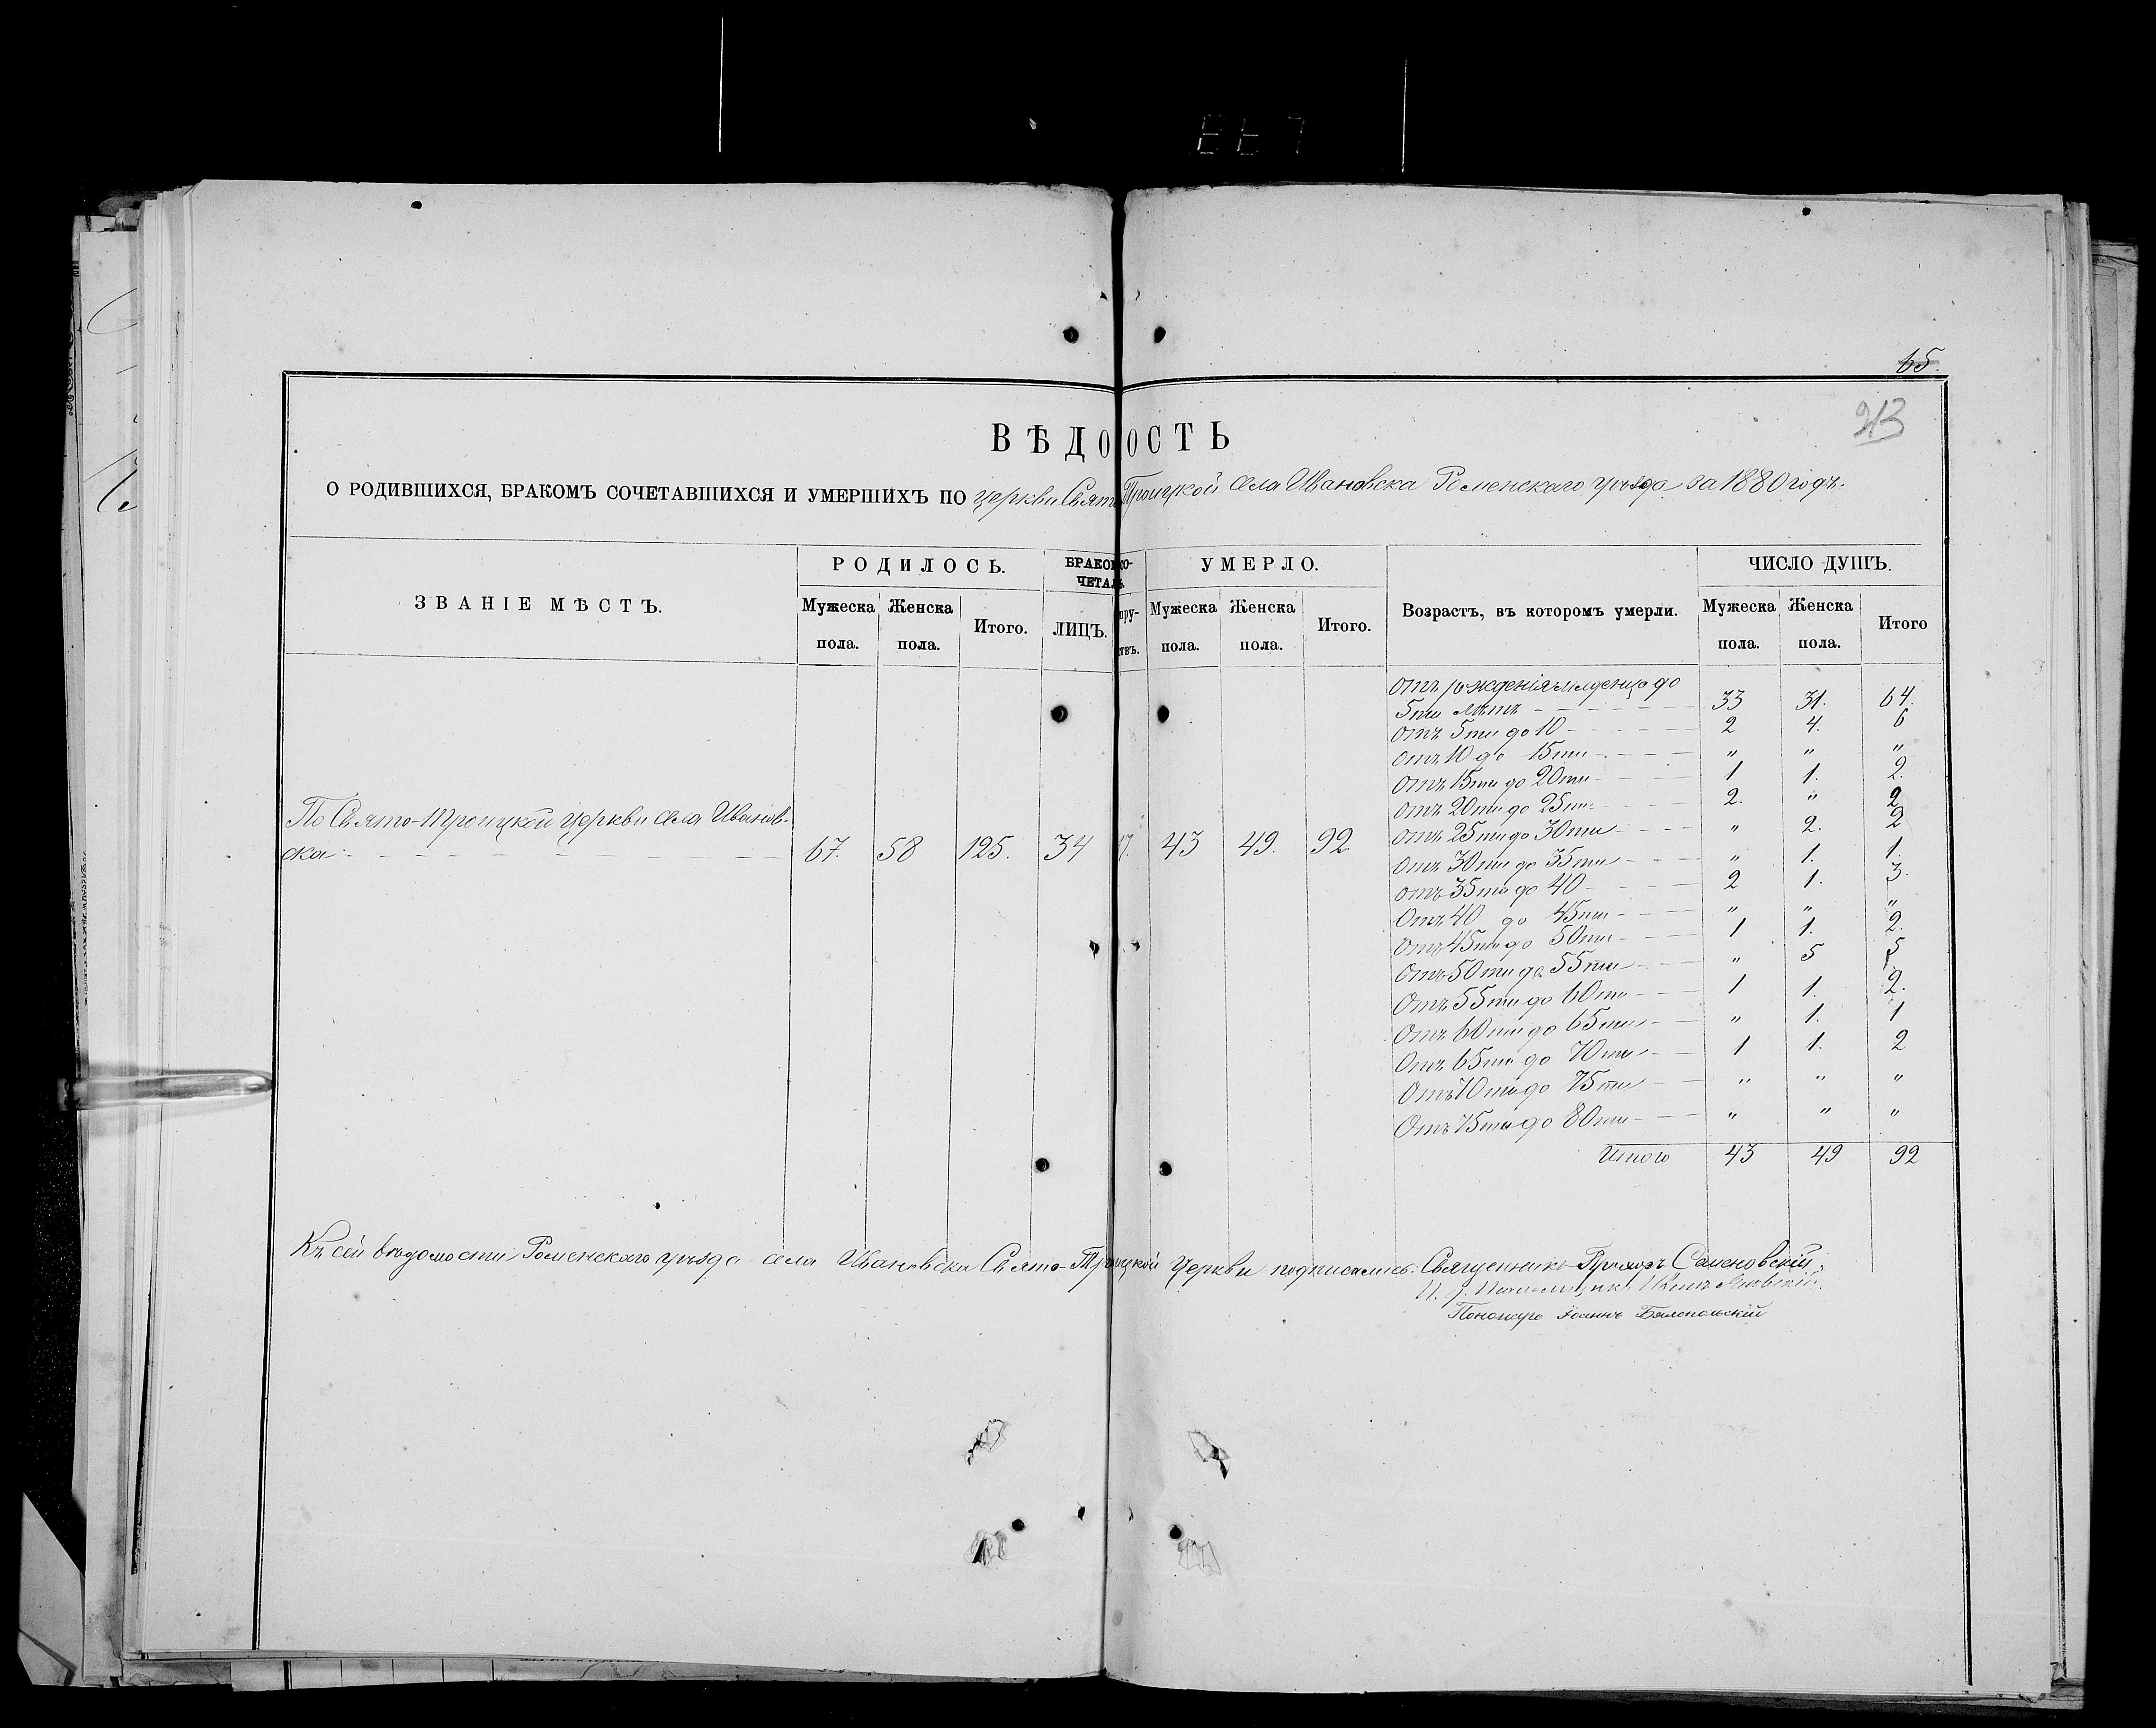 65.
213
ВѢДООСТЬ
О РОДИВШИХСЯ, БРАКОМЪ СОЧЕТАВШИХСЯ И УМЕРШИХЪ ПО церкви Свято Троицкой села Ивановска Роменскаго уѣзда за 1880 годъ.
ЗВАНІЕ МѢСТЪ. РОДИЛОСЬ. УМЕРЛО. Возрастъ, въ которомъ умерли. ЧИСЛО ДУШЪ.
Мужеска пола. Женска пола. Итого. ЛИЦЪ. Мужеска пола. Женска пола. Итого. Мужеска пола. Женска пола. Итого
По Свято-Троицкой церкви села Иванов-
ска 67. 58 125. 34 7. 43 49. 92
Отъ рожденія до
5ти лѣтъ 33 31. 64.
Отъ 5ти до 10 2 4. 6
Отъ 10 до 15ти " " "
Отъ 15ти до 20ти 1 1. 2.
Отъ 20ти до 25ти 2. " 2
Отъ 25ти до 30ти " 2. 2
Отъ 30ти до 35ти " 1. 1.
Отъ 35ти до 40 2 1. 3.
Отъ 40 до 45ти " " "
Отъ 45ти до 50ти 1 1. 2.
Отъ 50ти до 55ти " 5 5
Отъ 55ти до 60ти 1 1. 2.
Отъ 60ти до 65ти " 1. 1
Отъ 65ти до 70ти 1 1. 2
Отъ 70ти до 75ти " " "
Отъ 75ти до 80ти " " "
Итого 43 49 92
Къ сей вѣдомости Роменскаго уѣзда села Ивановска Свято-Троицкой Церкви подписались: Священникъ Семеновскій,
Пономарь Іоаннъ Бялопольскій